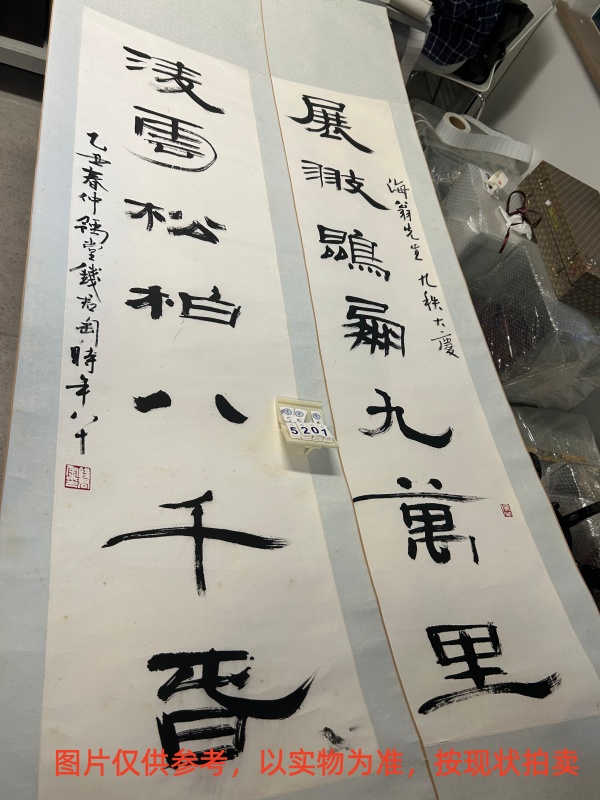 展翅鵾鵬九萬里
海翁先生 九秩大慶
凌雲松柏八千旾
乙丑春仲豫堂錢君匋時年八十
5201
图片仅供参考，以实物为准，按现状拍卖